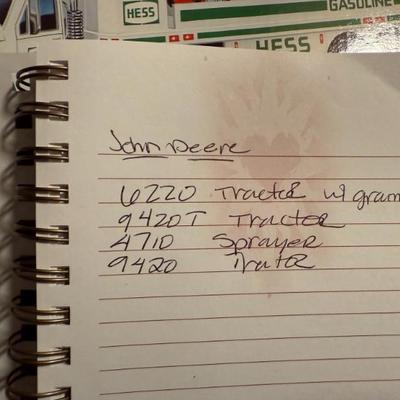 HESS
GASOLINE
HESS
John Deere
6220 Tractor w/ gram
9420T Tractor
4710 Sprayer
9420 Trator